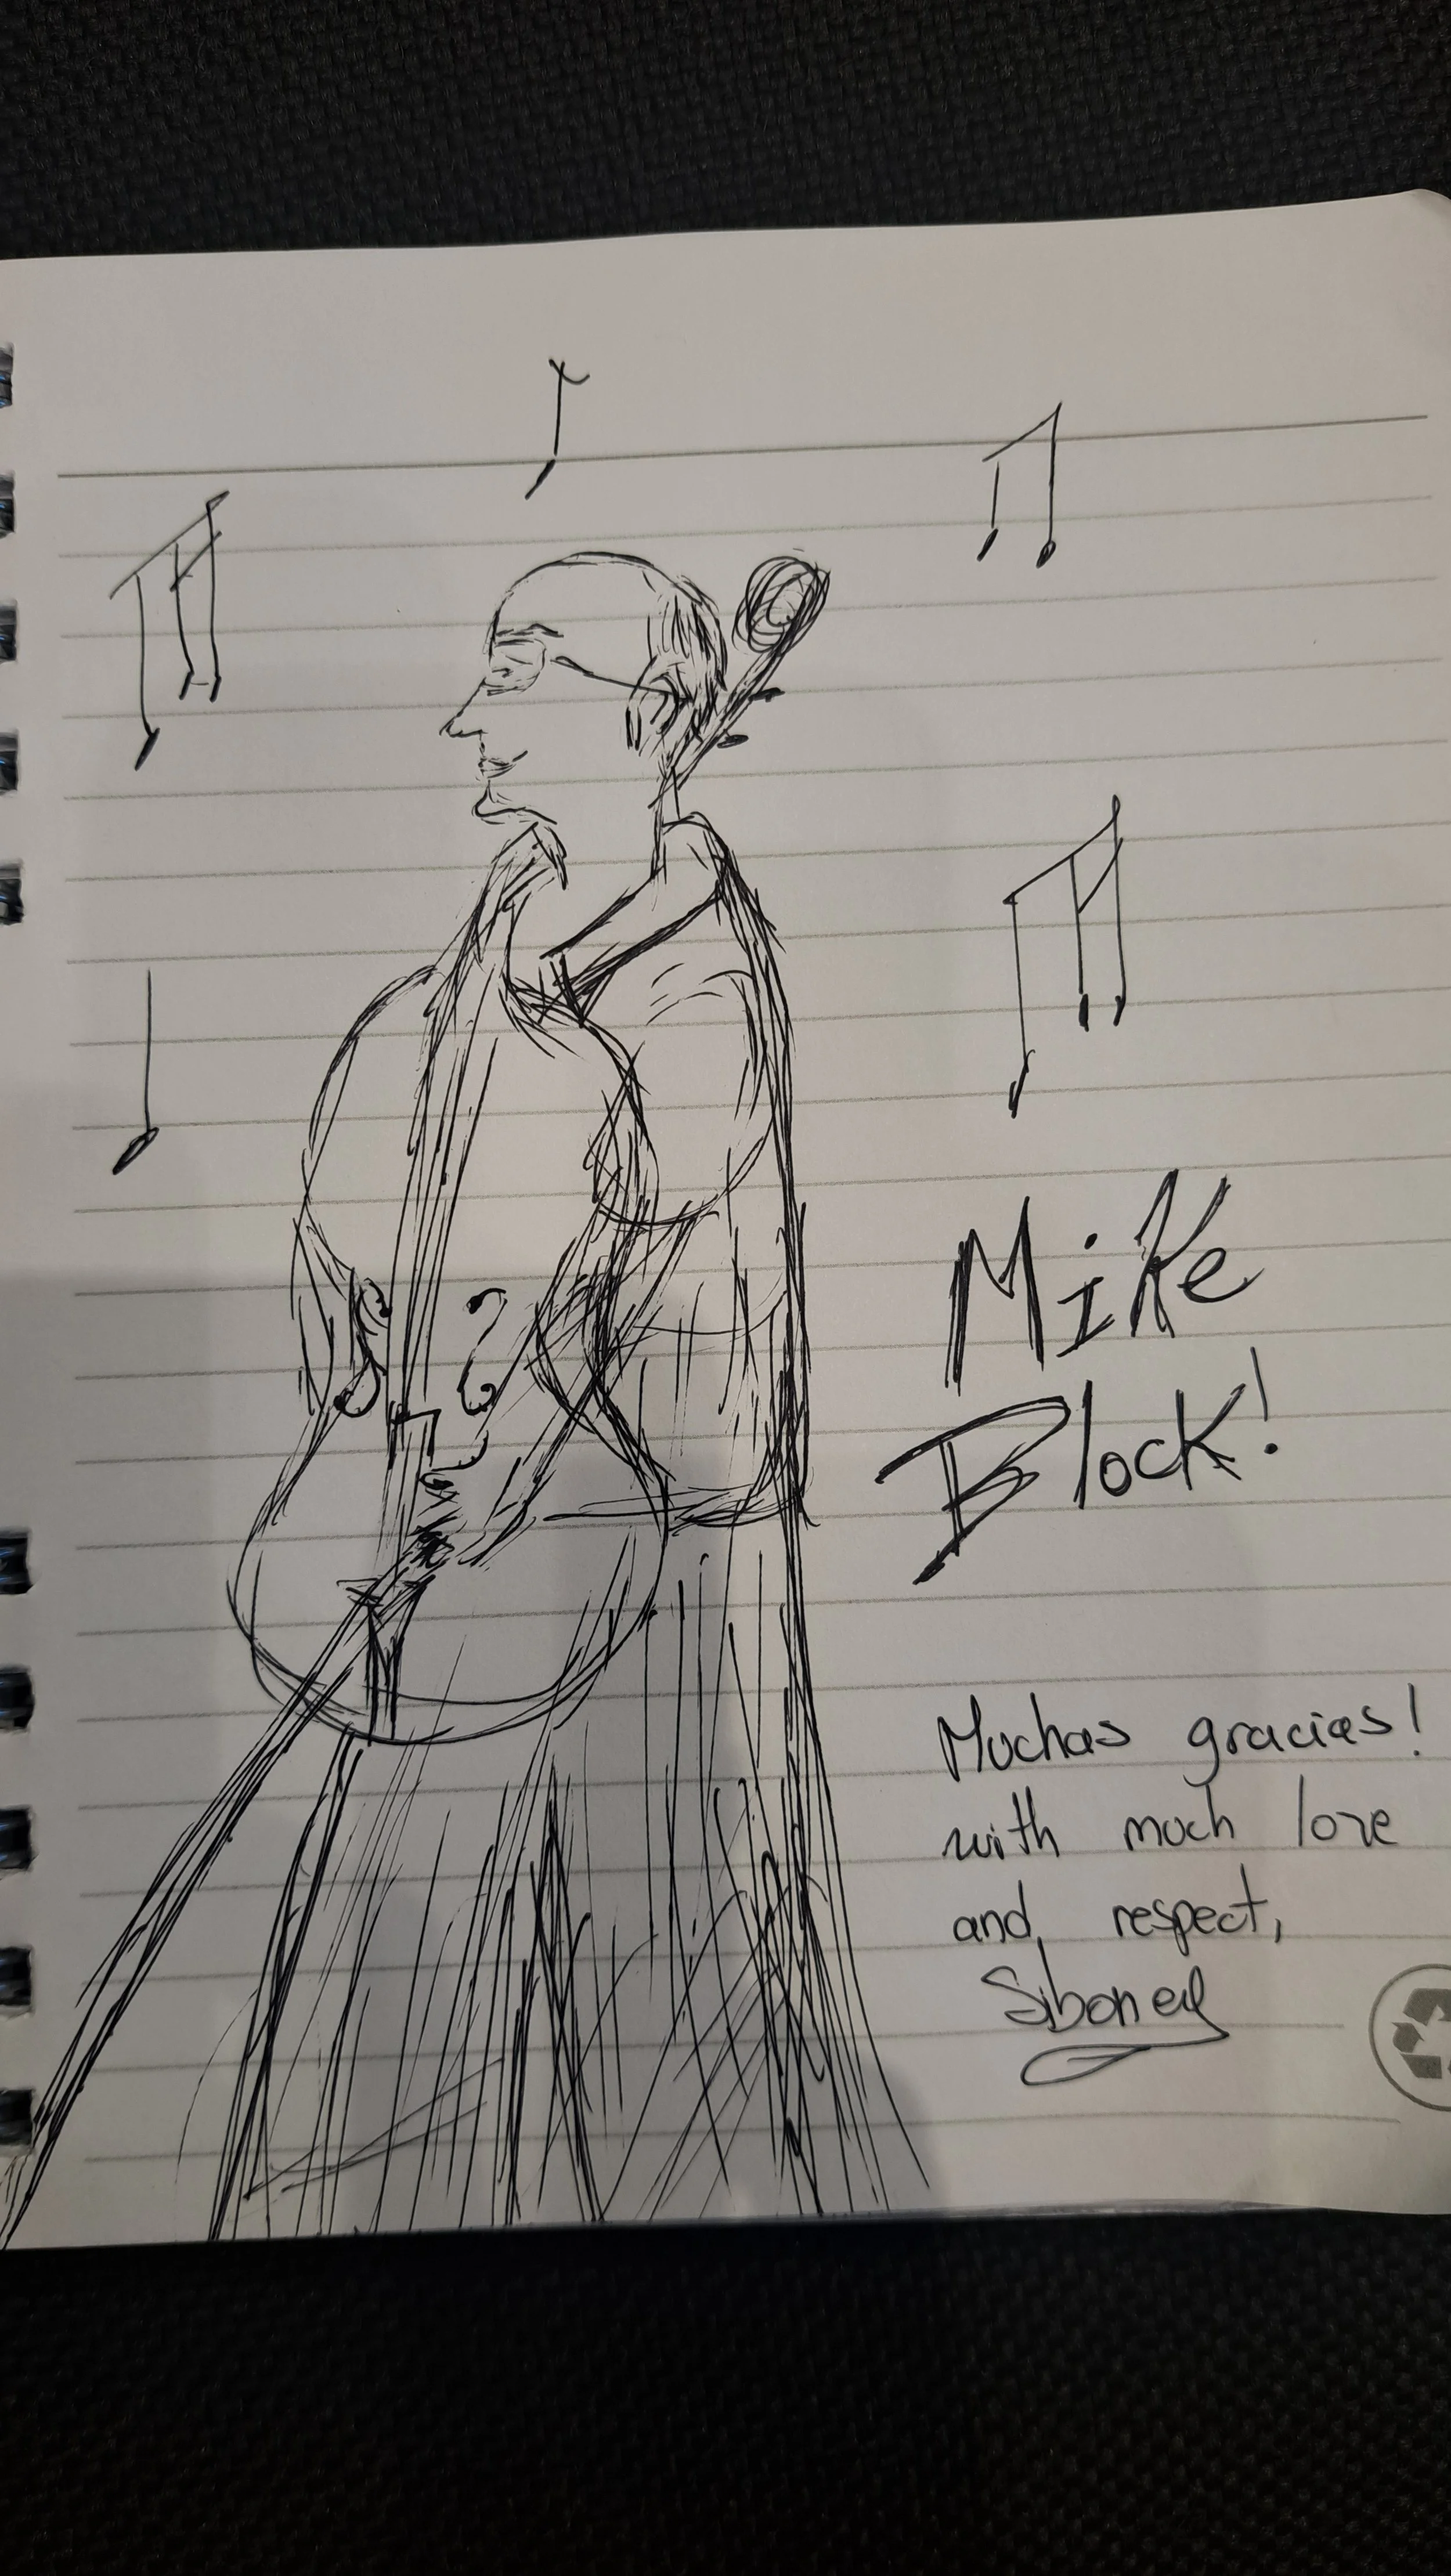 Mike
Block!
Muchas gracias!
with much love
and respect,
Siboney